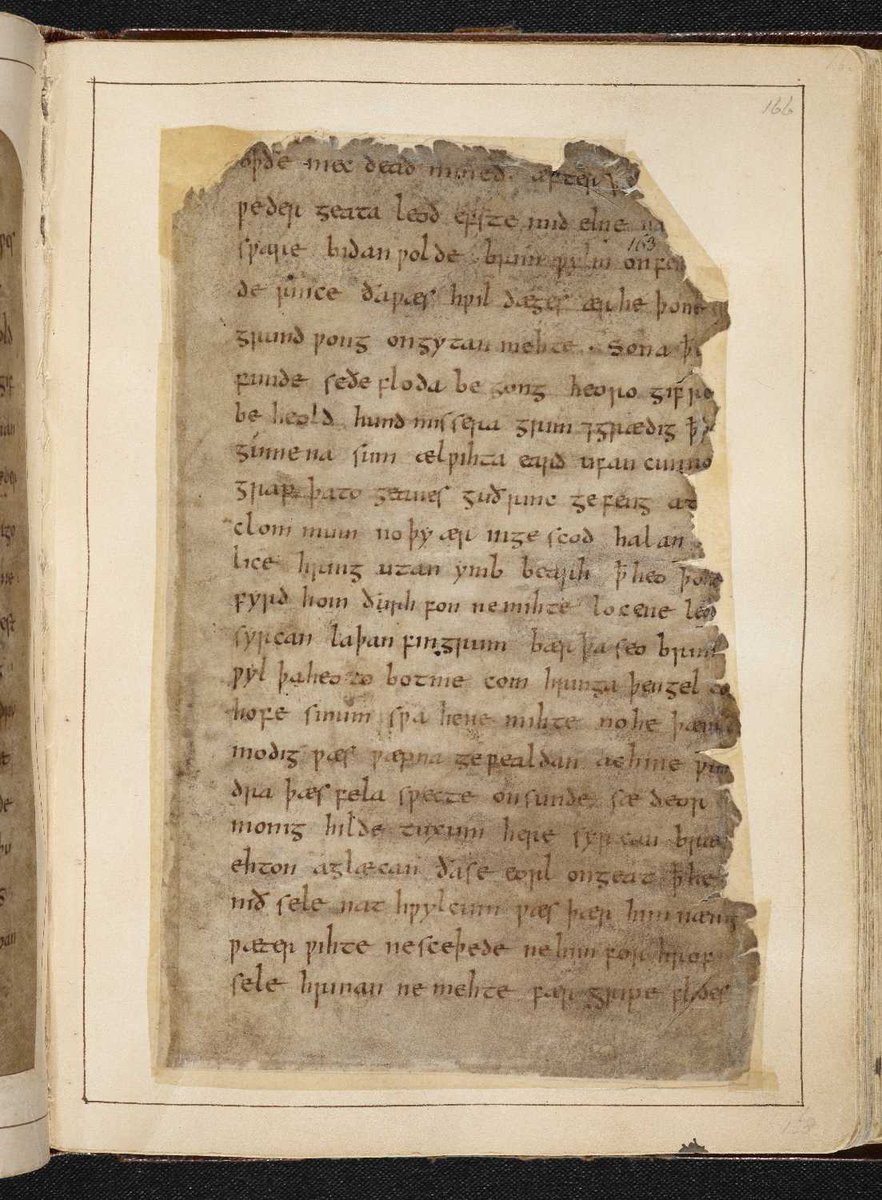 166
oþðe mec deað nimeð. æfter
peder geata leod efste mid elne
163
spare bidan polde brim pylm onfe
de rince ða pæs hpil dæges ær he þone
grund pong ongytan mehte. Sona þ̄
funde seðe floda be gong heoro gifre
be heold hund missera grim ⁊ grædig þ̄
gumena sum ælpihta eard ufan cunno
grap þa to geanes guð rinc ge feng at
clom mum no þy ær in ge scod halan
lice hring utan ymb bearh þ̄ heo þone
fyrd hom ðurh fon ne mihte locene leo
syrcan laþan fingrum bær þa seo brim
pyl þa heo to botme com hringa þengel to
hofe sinum spa he ne mihte no he þæm
modig pæs pæpna ge pealdan ac hine pun
dra þæs fela specte on sunde sæ deor
monig hilde tuxum here syrcan bræc
ehton aglæcan ða se eorl ongeat þ̄ he
nið sele nat hpylcum pæs þær him nænig
pæter pihte ne sceþede ne him for hrof
sele hrinan ne mehte fær gripe flodes